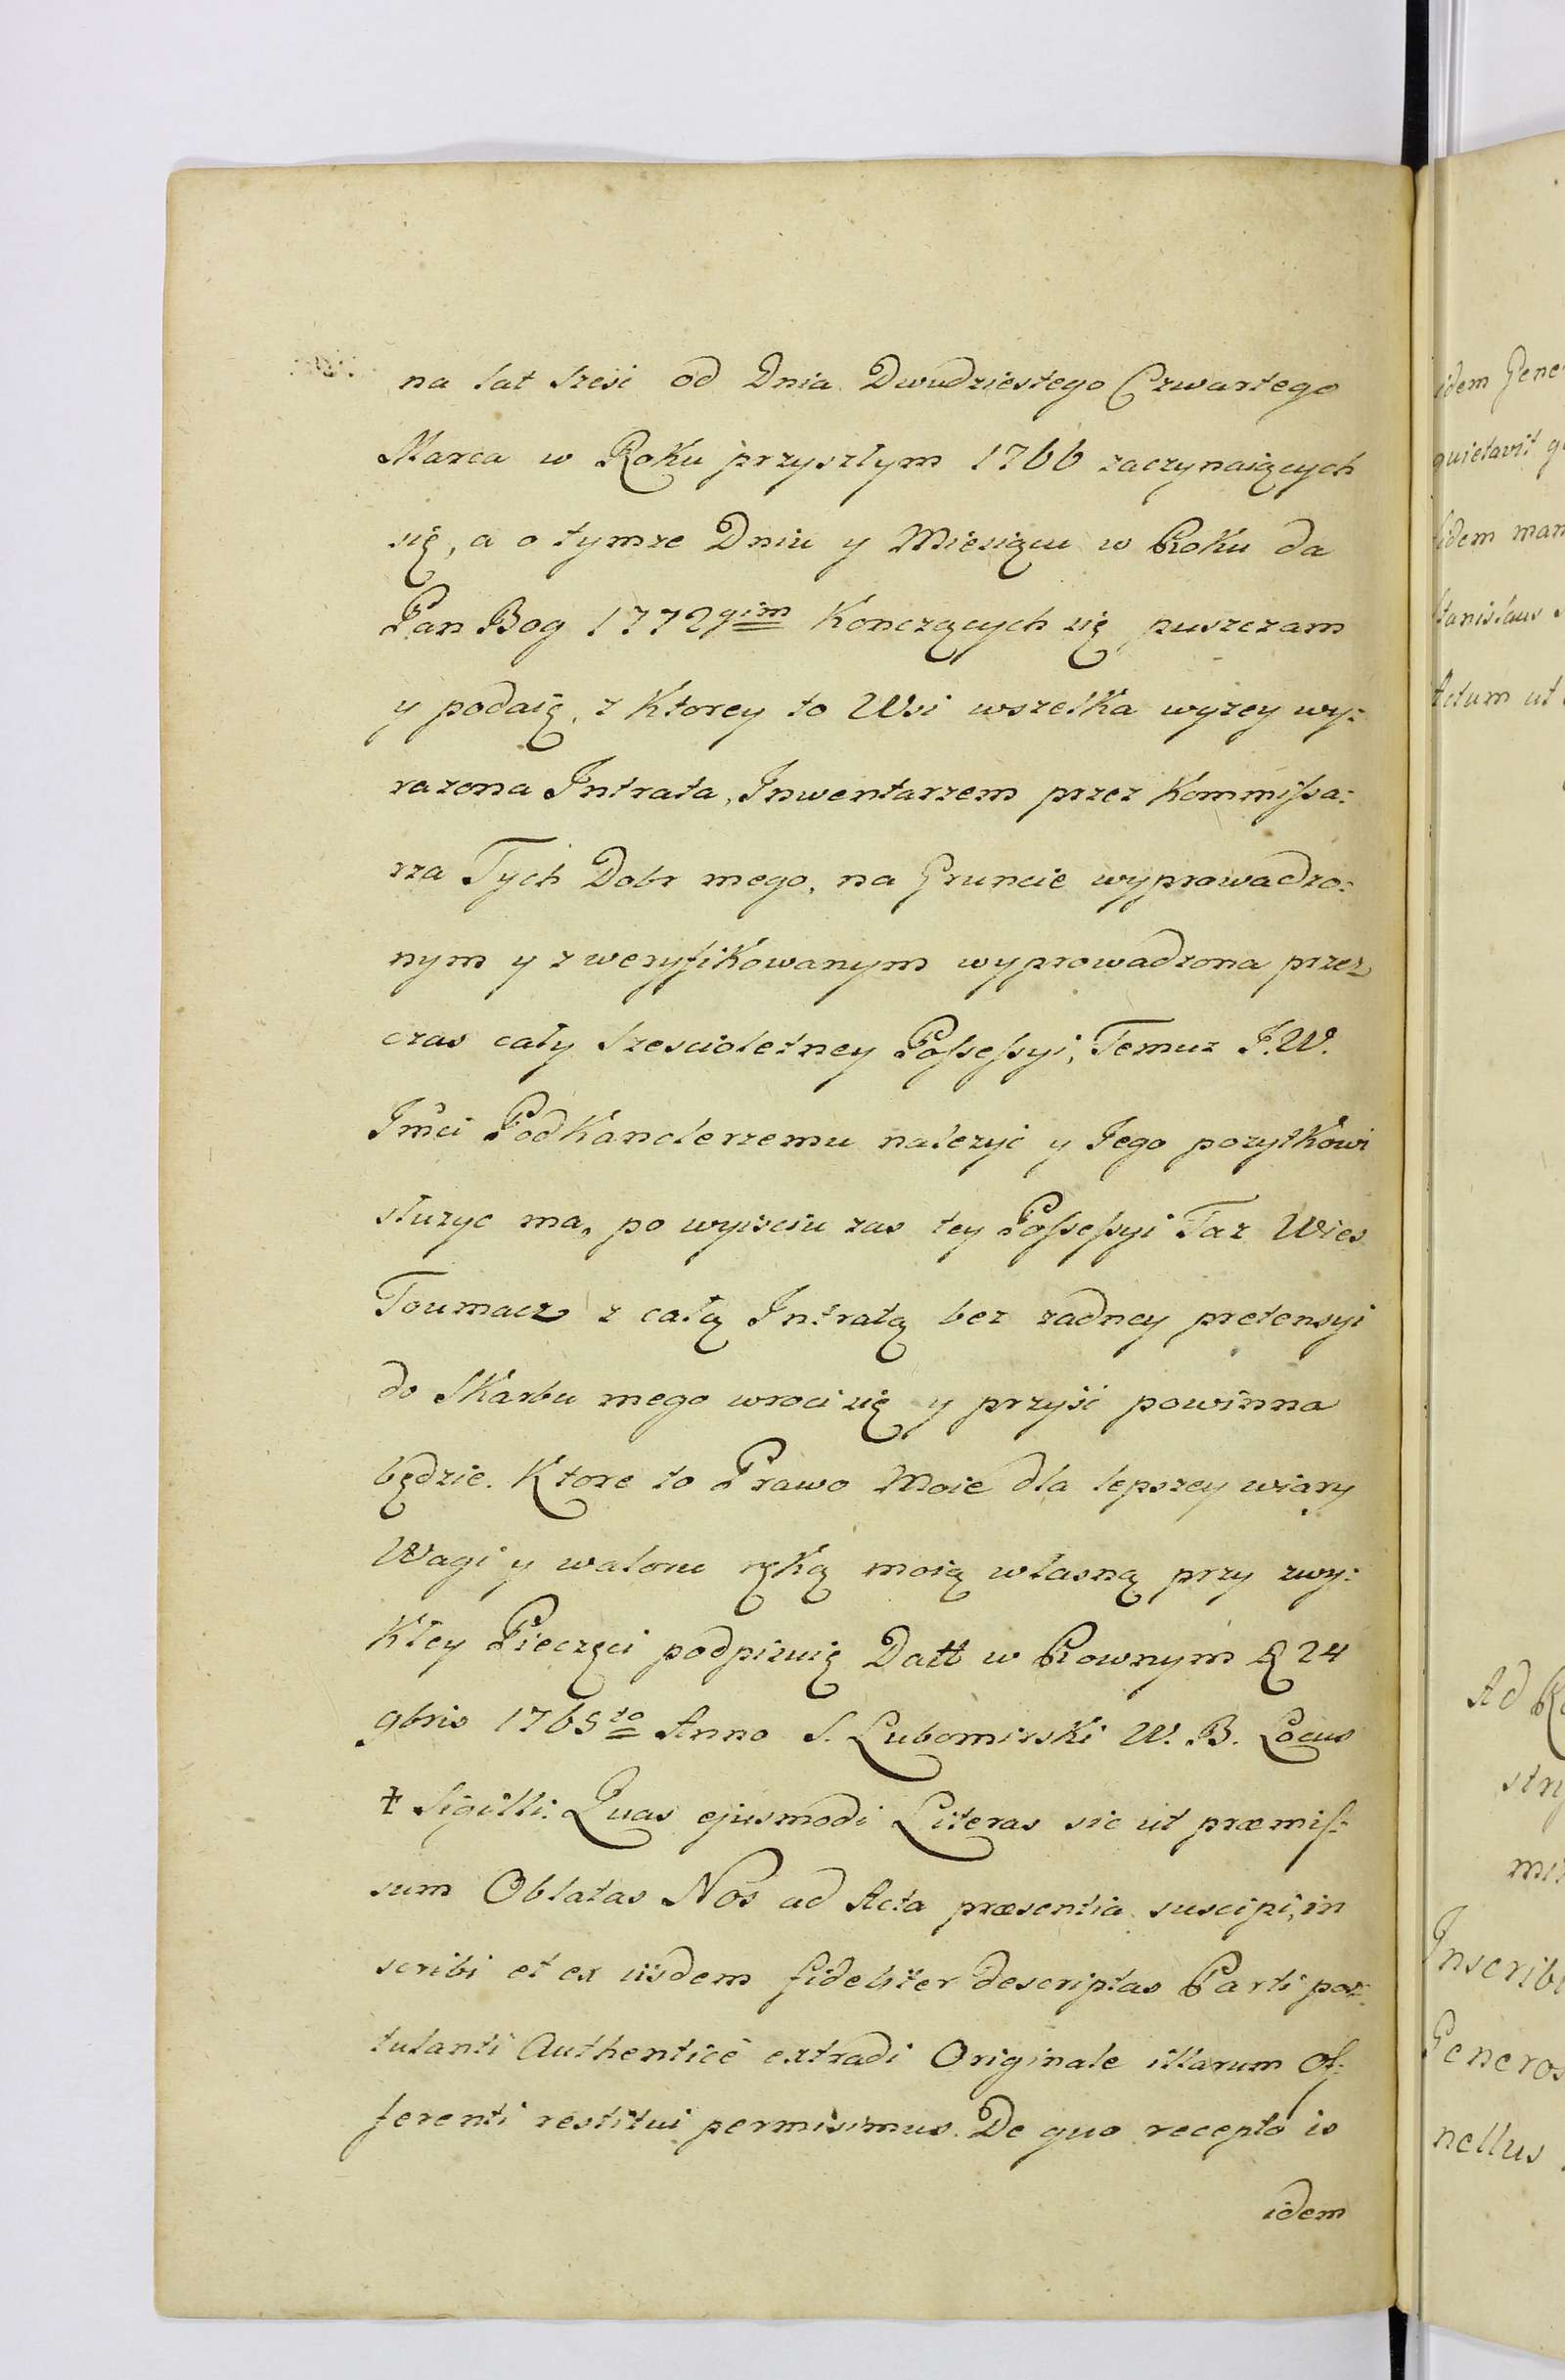 na lat szesc od Dnia Dwudziestego Czwartego
Marca w Roku przyszłym 1766 zaczynaiących
się, a o tymze Dniu y Miesiącu w Roku da
Pan Bog 1772gim Konczących się puszczam
y podaię, z Ktorey to Wsi wszelka wyzey wy:
razona Intrata, Inwentarzem przez Kommissa:
rza Tych Dobr mego, na Gruncie wyprowadzo:
nym y zweryfikowanym wyprowadzona przez
czas cały Szescioletney Possessyi, Temuz J.W.
Jmci PodKanclerzemu nalezyć y Jego pozytkowi
słuzyc ma, po wyisciu zas tey Possessyi Taz Wies
Toumacz z całą Intratą bez zadney pretensyi
do Skarbu mego wroci się y przyić powinna
będzie. Ktore to Prawo Moie dla lepszey wiary
Wagi y waloru ręką moią własną przy zwy:
Kłey Pieczęci podpisuię Datt w Rownym D 24
9bris 1765to Anno S. Lubomirski W. B. Locus
‡ Sigilli: Quas ejusmodi Literas sic ut præmis:
sum Oblatas Nos ad Acta præsentia suscipi, in
scribi et ex iisdem fideliter descriptas Parti pos:
tulanti Authenticè extradi Originale illarum of:
ferenti restitui permisimus. De quo recepto is
idem
idem Gene
quietavit
fidem man
Stanislaus
Actum ut
Ad
stry
Inscribi
Generos
nellus